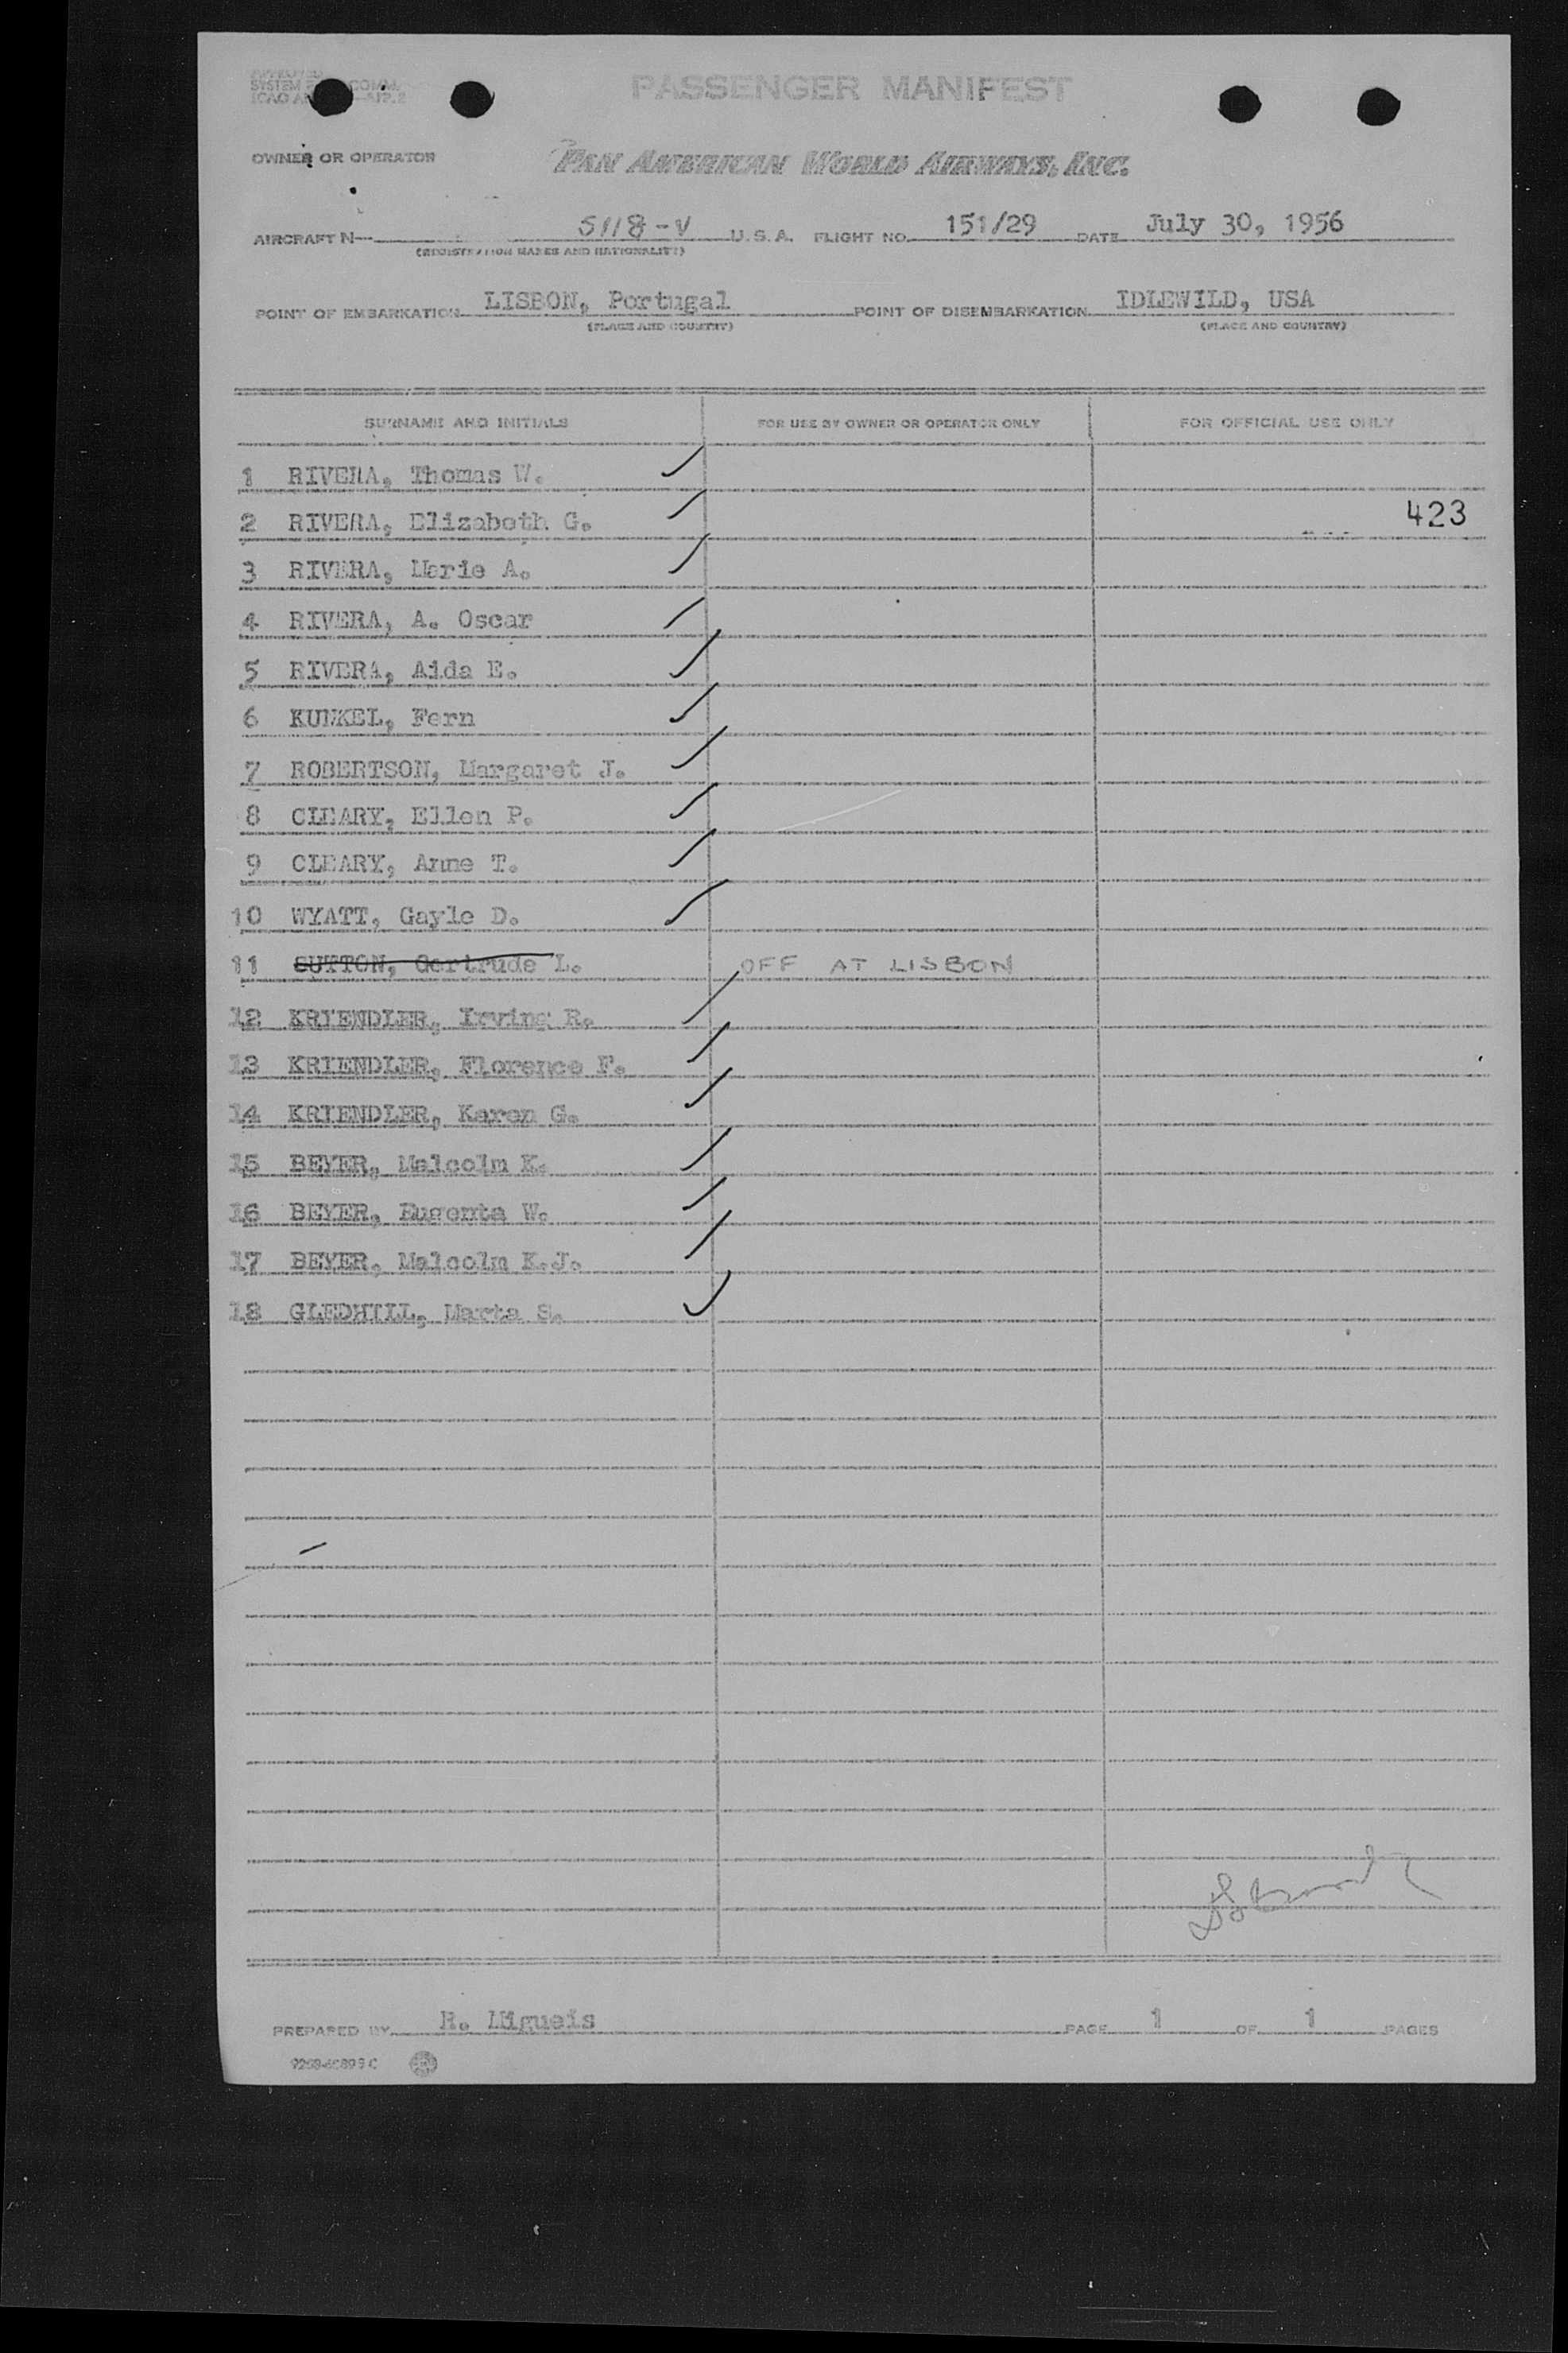 APPROVED
SYSTEM COMM.
PASSENGER MANIFEST
OWNER OR OPERATOR PAN AMERICAN WORLD AIRWAYS, INC.
AIRCRAFT N- 5118-V U.S.A. FLIGHT NO. 151/29 DATE July 30, 1956
(REGISTRATION MARKS AND NATIONALITY)
POINT OF EMBARKATION LISBON, Portugal POINT OF DISEMBARKATION IDLEWILD, USA
(PLACE AND COUNTRY) (PLACE AND COUNTRY)
SURNAME AND INITIALS FOR USE BY OWNER OR OPERATOR ONLY FOR OFFICIAL USE ONLY
1 RIVERA, Thomas W.
2 RIVERA, Elizabeth G. 423
3 RIVERA, Marie A.
4 RIVERA, A. Oscar
5 RIVERA, Aida E.
6 KUNKEL, Fern
7 ROBERTSON, Margaret J.
8 CLEARY, Ellen P.
9 CLEARY, Anne T.
10 WYATT, Gayle D.
11 SUTTON, Gertrude L. OFF AT LISBON
12 KRIENDLER, Irving R.
13 KRIENDLER, Florence F.
14 KRIENDLER, Karen G.
15 BEYER, Malcolm K.
16 BEYER, Eugenta W.
17 BEYER, Malcolm K.J.
18 GLEDHILL, Marta S.
PREPARED BY R. Migueis PAGE 1 OF 1 PAGES